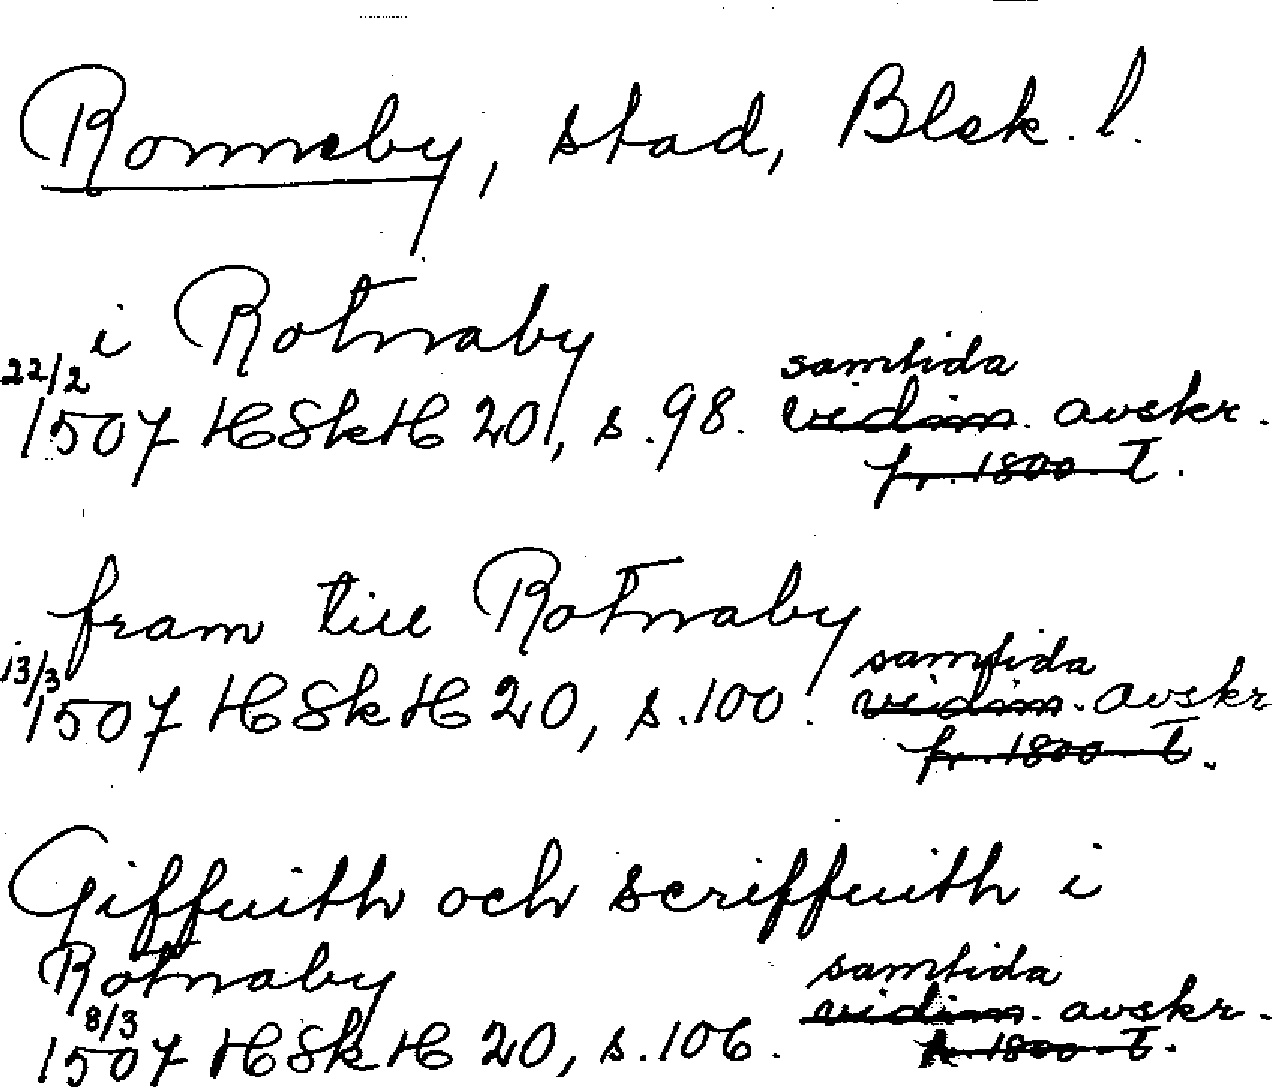 Ronneby, stad, Blek. l.
i Rotnaby
22/2 samtida
1507 HSkH 20, s. 98. vidim. avskr.
fr. 1800-t.
fram till Rotnaby
13/3 samtida
1507 HSkH 20, s. 100. vidim. avskr
fr. 1800-t.
Giffuith och scriffuith i
Rotnaby samtida
8/3 vidim. avskr.
1507 HSkH 20, s. 106. fr. 1800-t.